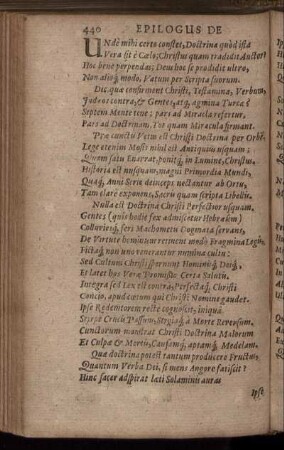 440 EPILOGUS DE
UNde mihi certo constet, Doctrina quòd ista
Vera sit è Cœlo, Christus quam tradidit Auctor?
Huc bene perpendas; Deus hoc se prodidit ultro,
Non alioq; modo, Vatum per Scripta suorum.
Dic quæ confirment Christi, Testamina, Verbum,
Judæos contra, & Gentes, atq; agmina Turcæ?
Septem Mente tene: pars ad Miracula refertur,
Pars ad Doctrinam, Tot quam Miracula firmant.
Præ cunctis Vetus est Christi Doctrina per Orbem
Lege etenim Mosis nihil est Antiquius usquam:
Quam satu Enarrat, ponitq; in Lumine, Christus,
Historia est nusquam, magni Primordia Mundi,
Quaq; Anni Serie deinceps nectantur ab Ortu,
Tam clarè exponens, Sacro quam scripta Libello.
Nulla est Doctrina Christi Perfectior usquam,
Gentes (quis hodie fas admiscetur Hebræum)
Cultoresq; feri Machometi Cognata servans,
De Virtute hominum retinent modò Fragmina Legis,
Fictaq; non uno venerantur numina cultu:
Sed Cultum Christi spernunt Hominemq; Deiq;,
Et latet hos Vera Promissio Certa Salutis.
Integra sed Lex est contra, Perfectaq; Christi
Concio, apud cœtum qui Christi Nomine gaudet.
Ipse Redemtorem rectè cognoscit, iniquâ
Stirpe Crucis Passum, Stygiaq; à Morte Reversum,
Cunctorum monstrat Christi Doctrina Malorum
Et Culpæ & Mortis, Causamq; aptamq; Medelam.
Quæ doctrina potest tantum producere Fructum,
Quantum Verba Dei, si mens Angore fatiscit?
Hinc sacer adspirat læti Solaminis auras
Ipse